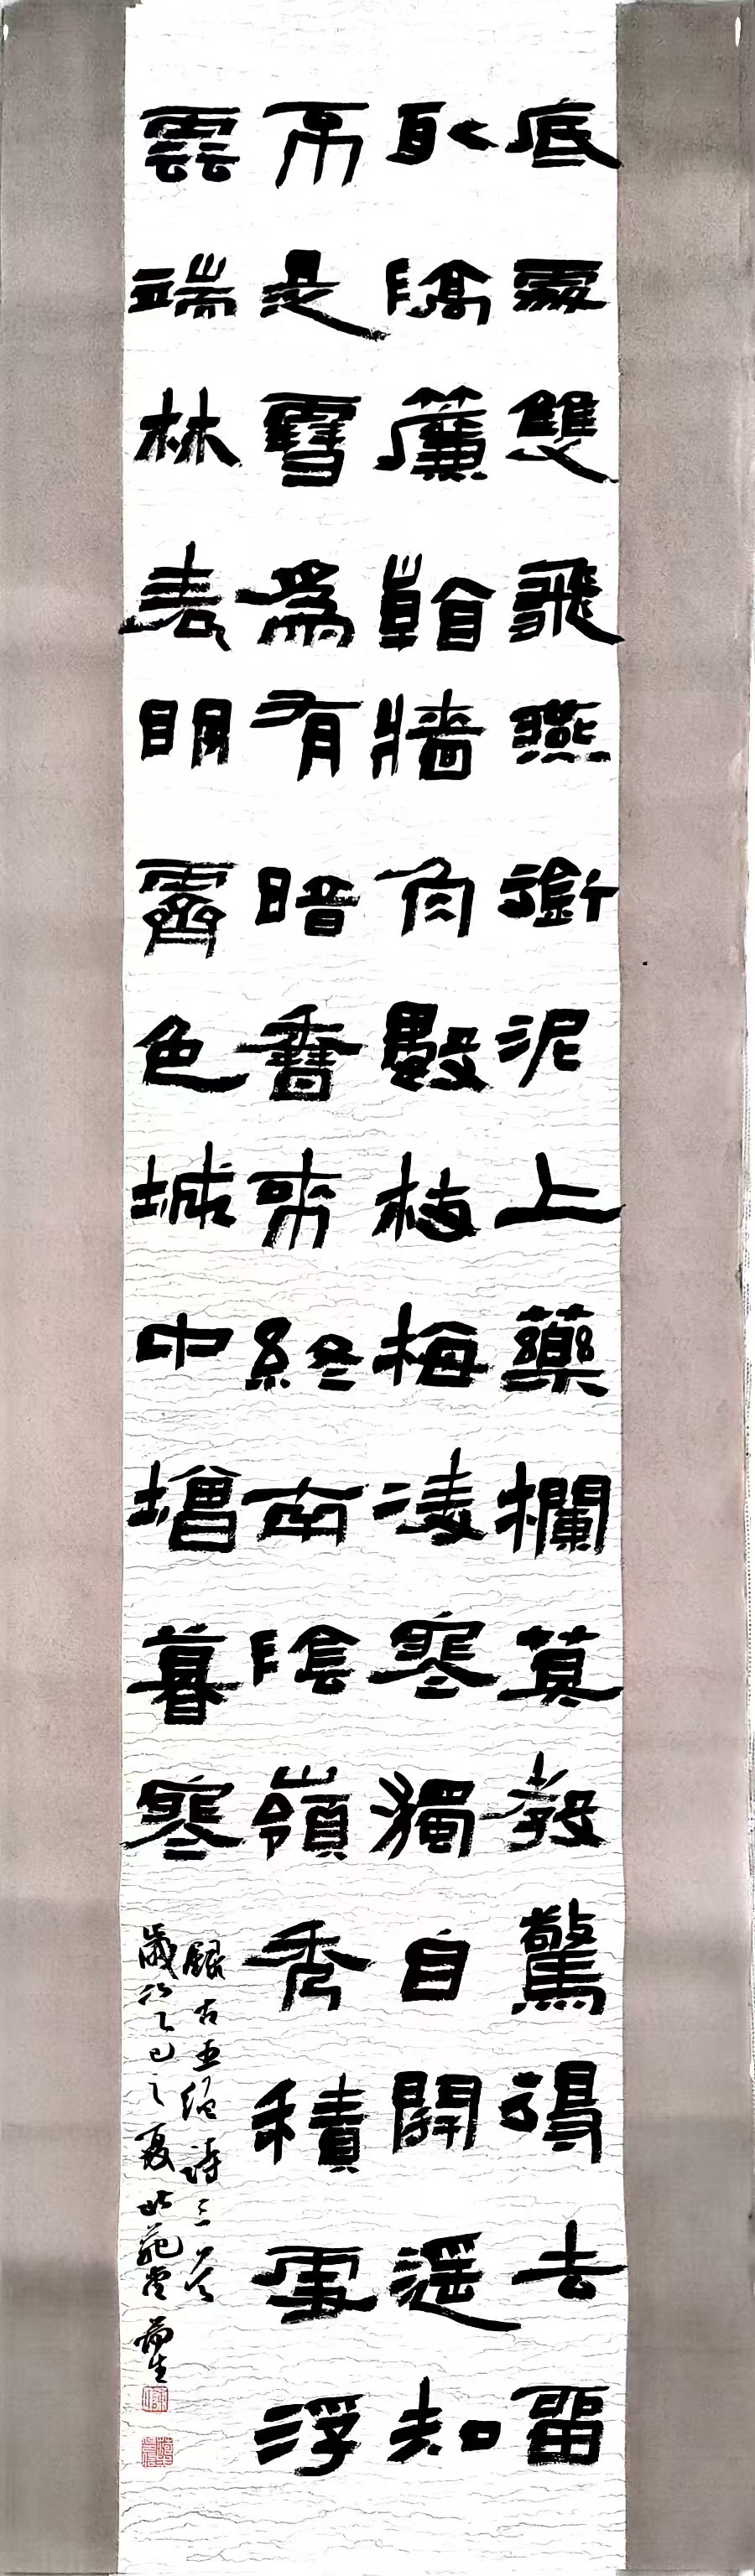 底處雙飛燕銜泥上藥欄莫教驚得去留
取隔簾看牆角數枝梅凌寒獨自開遥知
不是雪爲有暗香來終南陰嶺秀積雪浮
雲端林表明霽色城中增暮寒
錄古五絕詩三首
歲次乙巳之夏